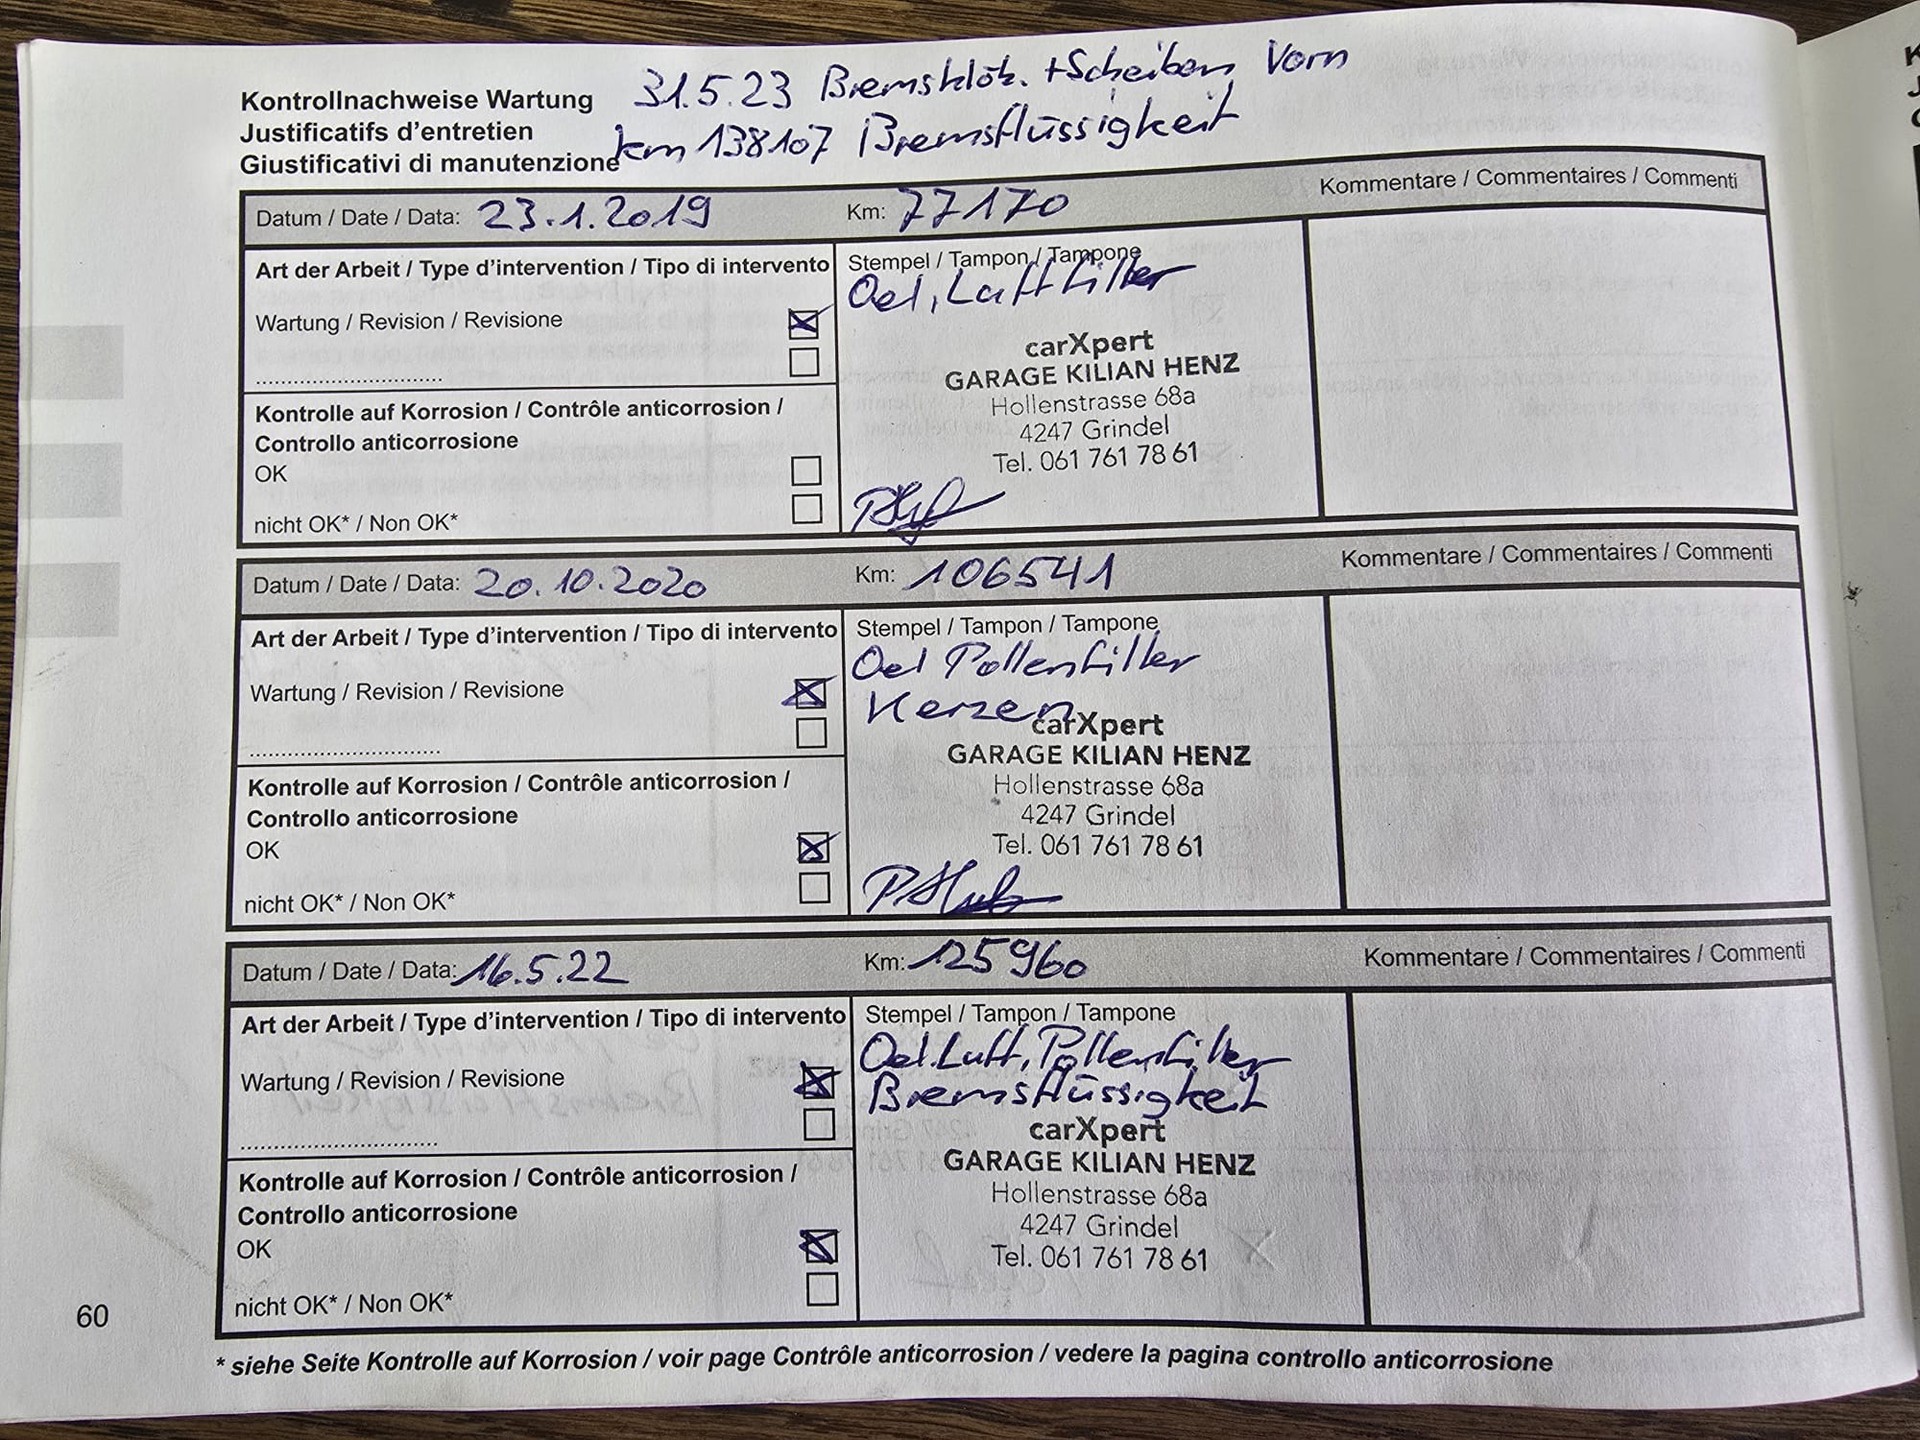 31.5.23 Bremsklötz. + Scheiben Vorn
km 138107 Bremsflüssigkeit
Kontrollnachweise Wartung
Justificatifs d'entretien
Giustificativi di manutenzione
Datum / Date / Data: 23.1.2019 Km: 77170 Kommentare / Commentaires / Commenti
Art der Arbeit / Type d'intervention / Tipo di intervento
Stempel / Tampon / Tampone
Oel, Luftfilter
Wartung / Revision / Revisione
carXpert
GARAGE KILIAN HENZ
Hollenstrasse 68a
4247 Grindel
Tel. 061 761 78 61
Kontrolle auf Korrosion / Contrôle anticorrosion /
Controllo anticorrosione
OK
nicht OK* / Non OK*
Datum / Date / Data: 20.10.2020 Km: 106541 Kommentare / Commentaires / Commenti
Art der Arbeit / Type d'intervention / Tipo di intervento
Stempel / Tampon / Tampone
Oel Pollenfilter
Kerzen
Wartung / Revision / Revisione
carXpert
GARAGE KILIAN HENZ
Hollenstrasse 68a
4247 Grindel
Tel. 061 761 78 61
Kontrolle auf Korrosion / Contrôle anticorrosion /
Controllo anticorrosione
OK
nicht OK* / Non OK*
Datum / Date / Data: 16.5.22 Km: 125960 Kommentare / Commentaires / Commenti
Art der Arbeit / Type d'intervention / Tipo di intervento
Stempel / Tampon / Tampone
Oel.Luft, Pollenfilter
Bremsflüssigkeit
Wartung / Revision / Revisione
carXpert
GARAGE KILIAN HENZ
Hollenstrasse 68a
4247 Grindel
Tel. 061 761 78 61
Kontrolle auf Korrosion / Contrôle anticorrosion /
Controllo anticorrosione
OK
nicht OK* / Non OK*
60
* siehe Seite Kontrolle auf Korrosion / voir page Contrôle anticorrosion / vedere la pagina controllo anticorrosione